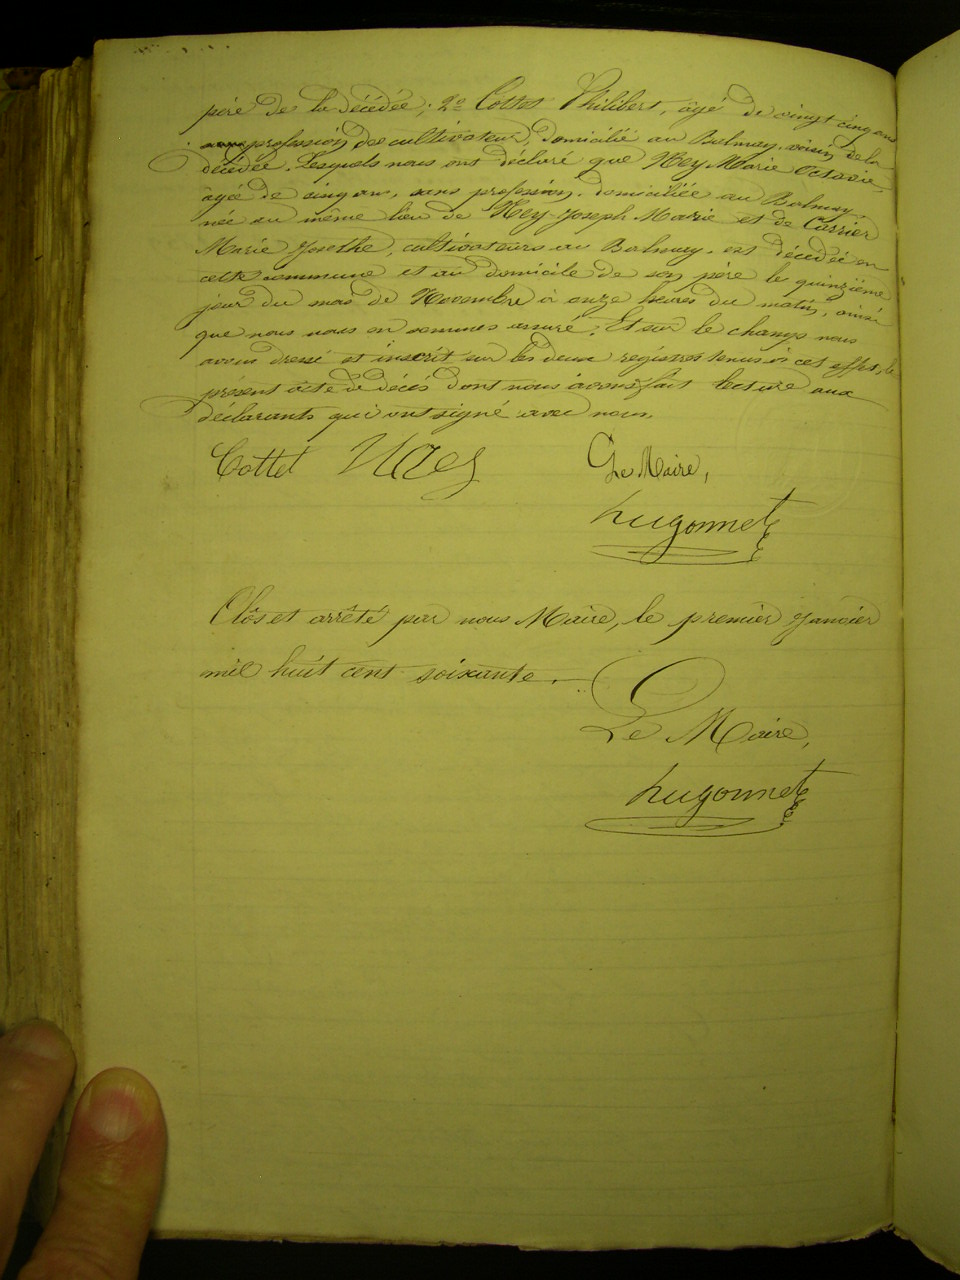 père de la décédée; 2º Cottet Philibert, âgé de vingt cinq ans
profession de cultivateur, domicilié au Balmay, voisin de la
décédée. Lesquels nous ont déclaré que Rey Marie Octavie,
âgé de cinq ans, sans profession, domiciliée au Balmay,
née au même lieu de Rey Joseph Marie et de Carrier
Marie Josethe, cultivateurs au Balmay, est décédée en
cette commune et au domicile de son père le quinzième
jour du mois de Novembre à onze heures du matin, ainsi
que nous nous en sommes assuré. Et sur le champs nous
avons dressé et inscrit sur les deux registres tenus à cet effet, le
présent acte de décès dont nous avons fait lecture aux
déclarants qui ont signé avec nous.
Cottet Le Maire,
hugonnet
Clos et arrêté par nous Maire, le premier Janvier
mil huit cent soixante.
Le Maire,
hugonnet